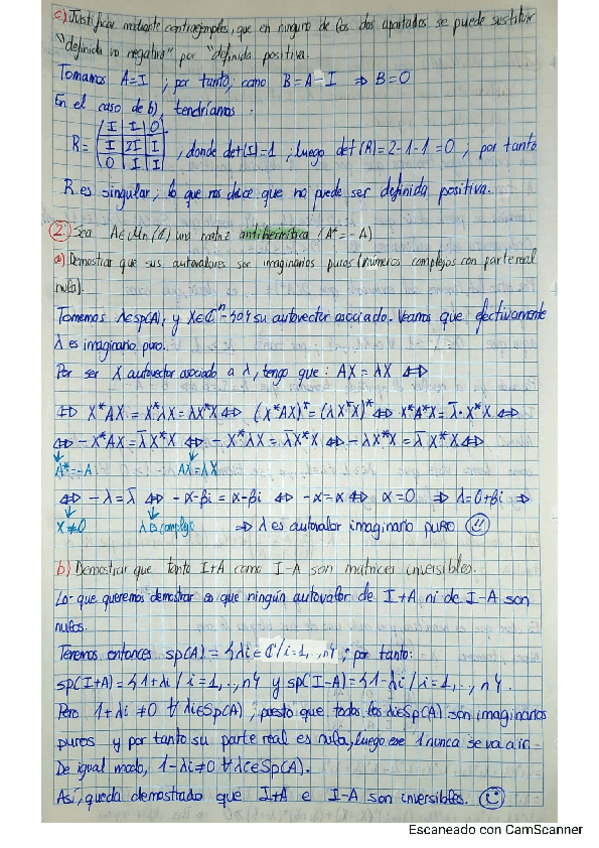 c) Justificar mediante contraejemplos, que en ninguno de los dos apartados se puede sustituir
"definida no negativa" por "definida positiva.
Tomamos A=I ; por tanto, como B=A-I ⇒ B=0
En el caso de b), tendríamos:
R= | I | I | 0 |
| I | 2I | I | , donde det(I)=1 ; luego det(R)=2-1-1=0 , por tanto
| 0 | I | I |
R es singular; lo que nos dice que no puede ser definida positiva.
2. Sea A∈Mn(ℂ) una matriz antihermítica (A*=-A)
a) Demostrar que sus autovalores son imaginarios puros (números complejos con parte real
nula).
Tomemos λ∈sp(A), y X∈ℂⁿ-{0} su autovector asociado. Veamos que efectivamente
λ es imaginario puro.
Por ser X autovector asociado a λ, tengo que: AX=λX ⇔
⇔ X*AX=X*λX=λX*X ⇔ (X*AX)*=(λX*X)* ⇔ X*A*X=λ̄·X*X ⇔
⇔ -X*AX=λ̄X*X ⇔ -X*λX=λ̄X*X ⇔ -λX*X=λ̄X*X ⇔
A*=-A AX=λX
⇔ -λ=λ̄ ⇔ -α-βi=α-βi ⇔ -α=α ⇔ α=0 ⇒ λ=0+βi ⇒
X≠0 λ es complejo ⇒ λ es autovalor imaginario puro
b) Demostrar que tanto I+A como I-A son matrices inversibles.
Lo que queremos demostrar es que ningún autovalor de I+A ni de I-A son
nulos.
Tenemos entonces sp(A)={λi∈ℂ/i=1,..,n} ; por tanto:
sp(I+A)={1+λi/i=1,..,n} y sp(I-A)={1-λi/i=1,..,n}.
Pero 1+λi≠0 ∀λi∈Sp(A) ; puesto que todos los λi∈Sp(A) son imaginarios
puros y por tanto su parte real es nula, luego ese 1 nunca se va a ir.
De igual modo, 1-λi≠0 ∀λi∈Sp(A).
Así, queda demostrado que I+A e I-A son inversibles.
Escaneado con CamScanner